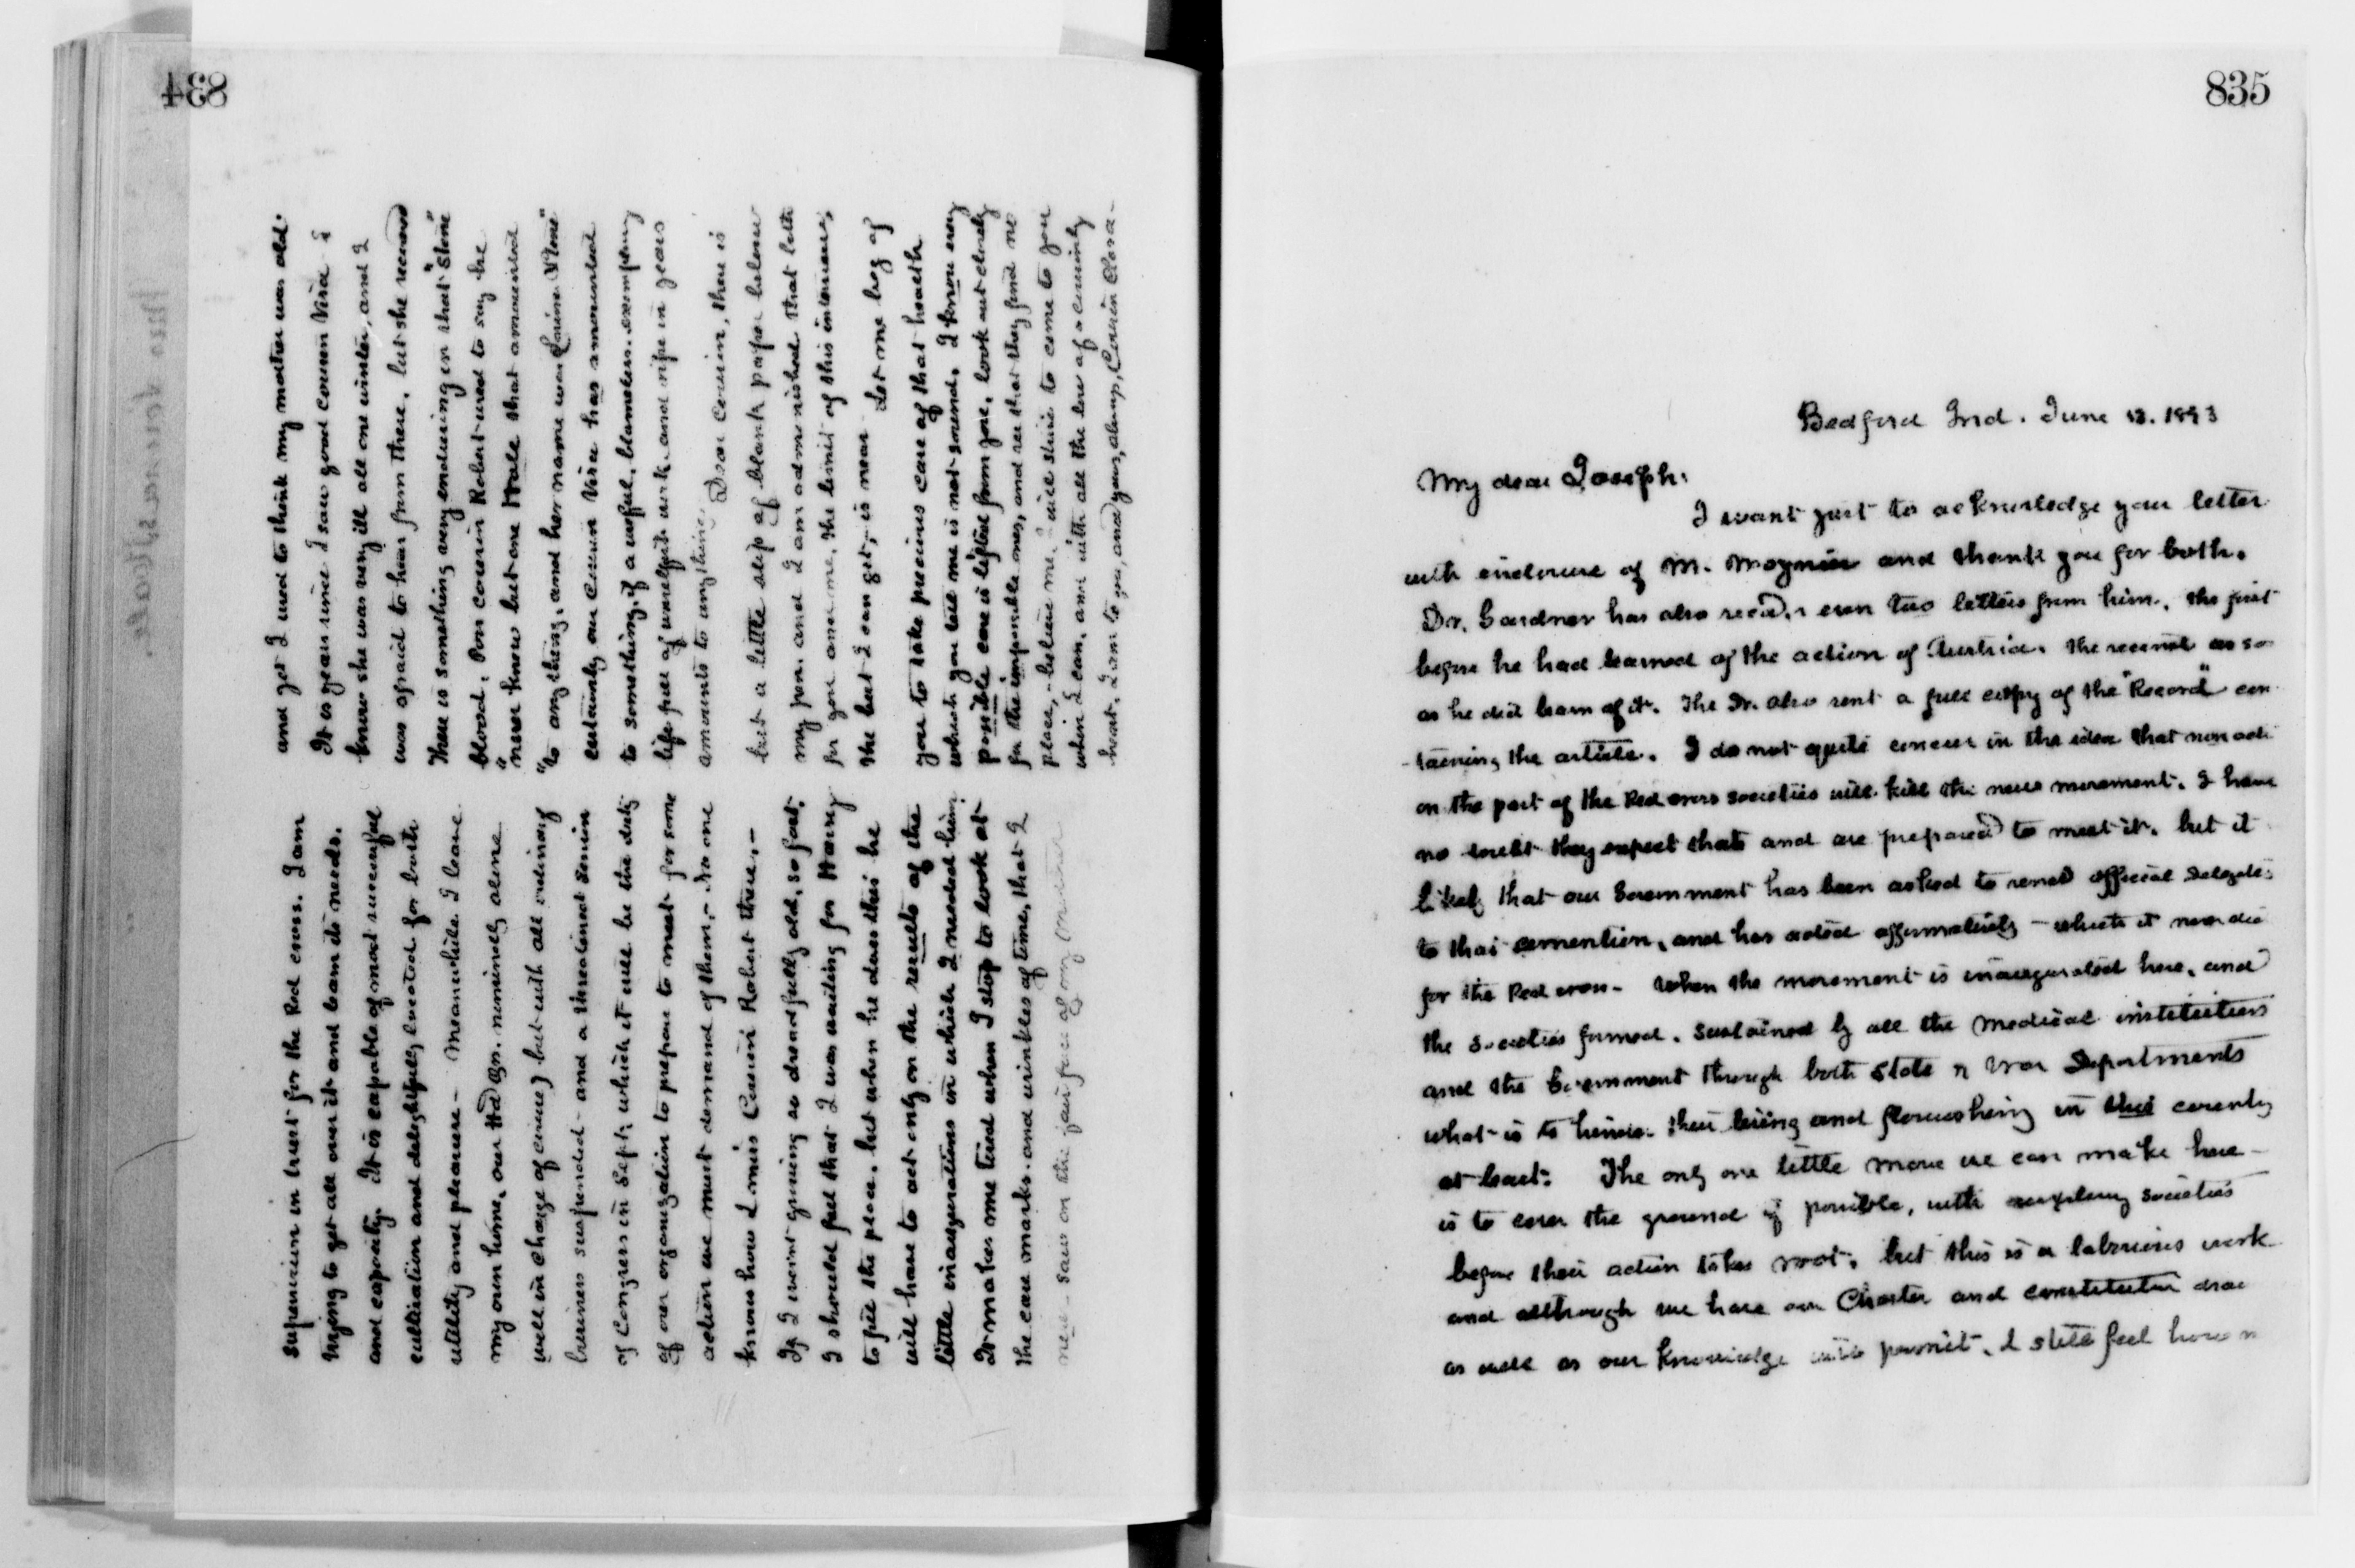 834
supervision in trust for the Red cross. I am
trying to get all over it and learn its needs.
and capacity. It is capable of most successful
cultivation and delightfully located for both
utility and pleasure - Meanwhile I leave
my own home, our Hd Qrs. nominally alone
well in charge of course) but with all ordinary
business suspended - and a threatened session
of Congress in Sept, which it will be the duty
of our organization to prepare to meet for some
action we must demand of them. - No one
knows how I miss Cousin Robert there. -
If I wasnt growing so dreadfully old, so fast,
I should feel that I was waiting for Harvey
to fill the place. but when he does this he
will have to act only on the results of the
little inaugurations in which I needed him.
It makes me tired when I stop to look at
the ear marks. and wrinkles of time, that I
never saw on the fair face of my mother
and yet I used to think my mother was old.
It is years since I saw good cousin Vira I
know she was very ill all one winter, and I
was afraid to hear from there, but she recovered
There is something very enduring in that "Stone"
blood, Poor cousin Robert used to say he
"never knew but one Hale that amounted
"to anything, and her name was Lavina Stone"
certainly our cousin Vira has amounted
to something, if a useful, blameless. exemplary
life full of unselfish work. and ripe in years
amounts to anything. Dear Cousin, there is
but a little slip of blank paper below
my pen. and I am admonished that both
for you and me, the limit of this interview,
the best I can get, is near Let me beg of
you to take precious care of that health
which you tell me is not sound. I know every
possible care is lifted from you, look out closely
for the impossible ones, and see that they find no
place, - believe me I will strive to come to you
when I can, and with all the love of a cousinly
heart, I am to you, and yours, always, Cousin Clara -
835
Bedford Ind. June 13. 1893
My dear Joseph.
I want just to acknowledge your letter
with enclosure of M. Moynier and thank you for both.
Dr. Gardner has also recd. even two letters from him, the first
before he had learned of the action of Austria. the second as so
as he did learn of it. The Dr. also sent a full copy of the "Record" con
-taining the article. I do not quite concur in the idea that non acti
on the part of the Red cross societies will kill the new movement. I have
no doubt they expect that and are prepared to meet it. but it
likely that our Government has been asked to send official Delegates
to that convention, and has acted affirmatively - which it never did
for the Red cross - When the movement is inaugurated here, and
the societies formed. sustained by all the medical institutions
and the Government through both State & War Departments
what is to hinder their living and flourishing in this country
at least. The only one little move we can make here -
is to cover the ground if possible, with auxiliary societies
before their action takes root. but this is a laborious work
and although we have our Charter and constitution
as well as our knowledge will permit. I still feel how